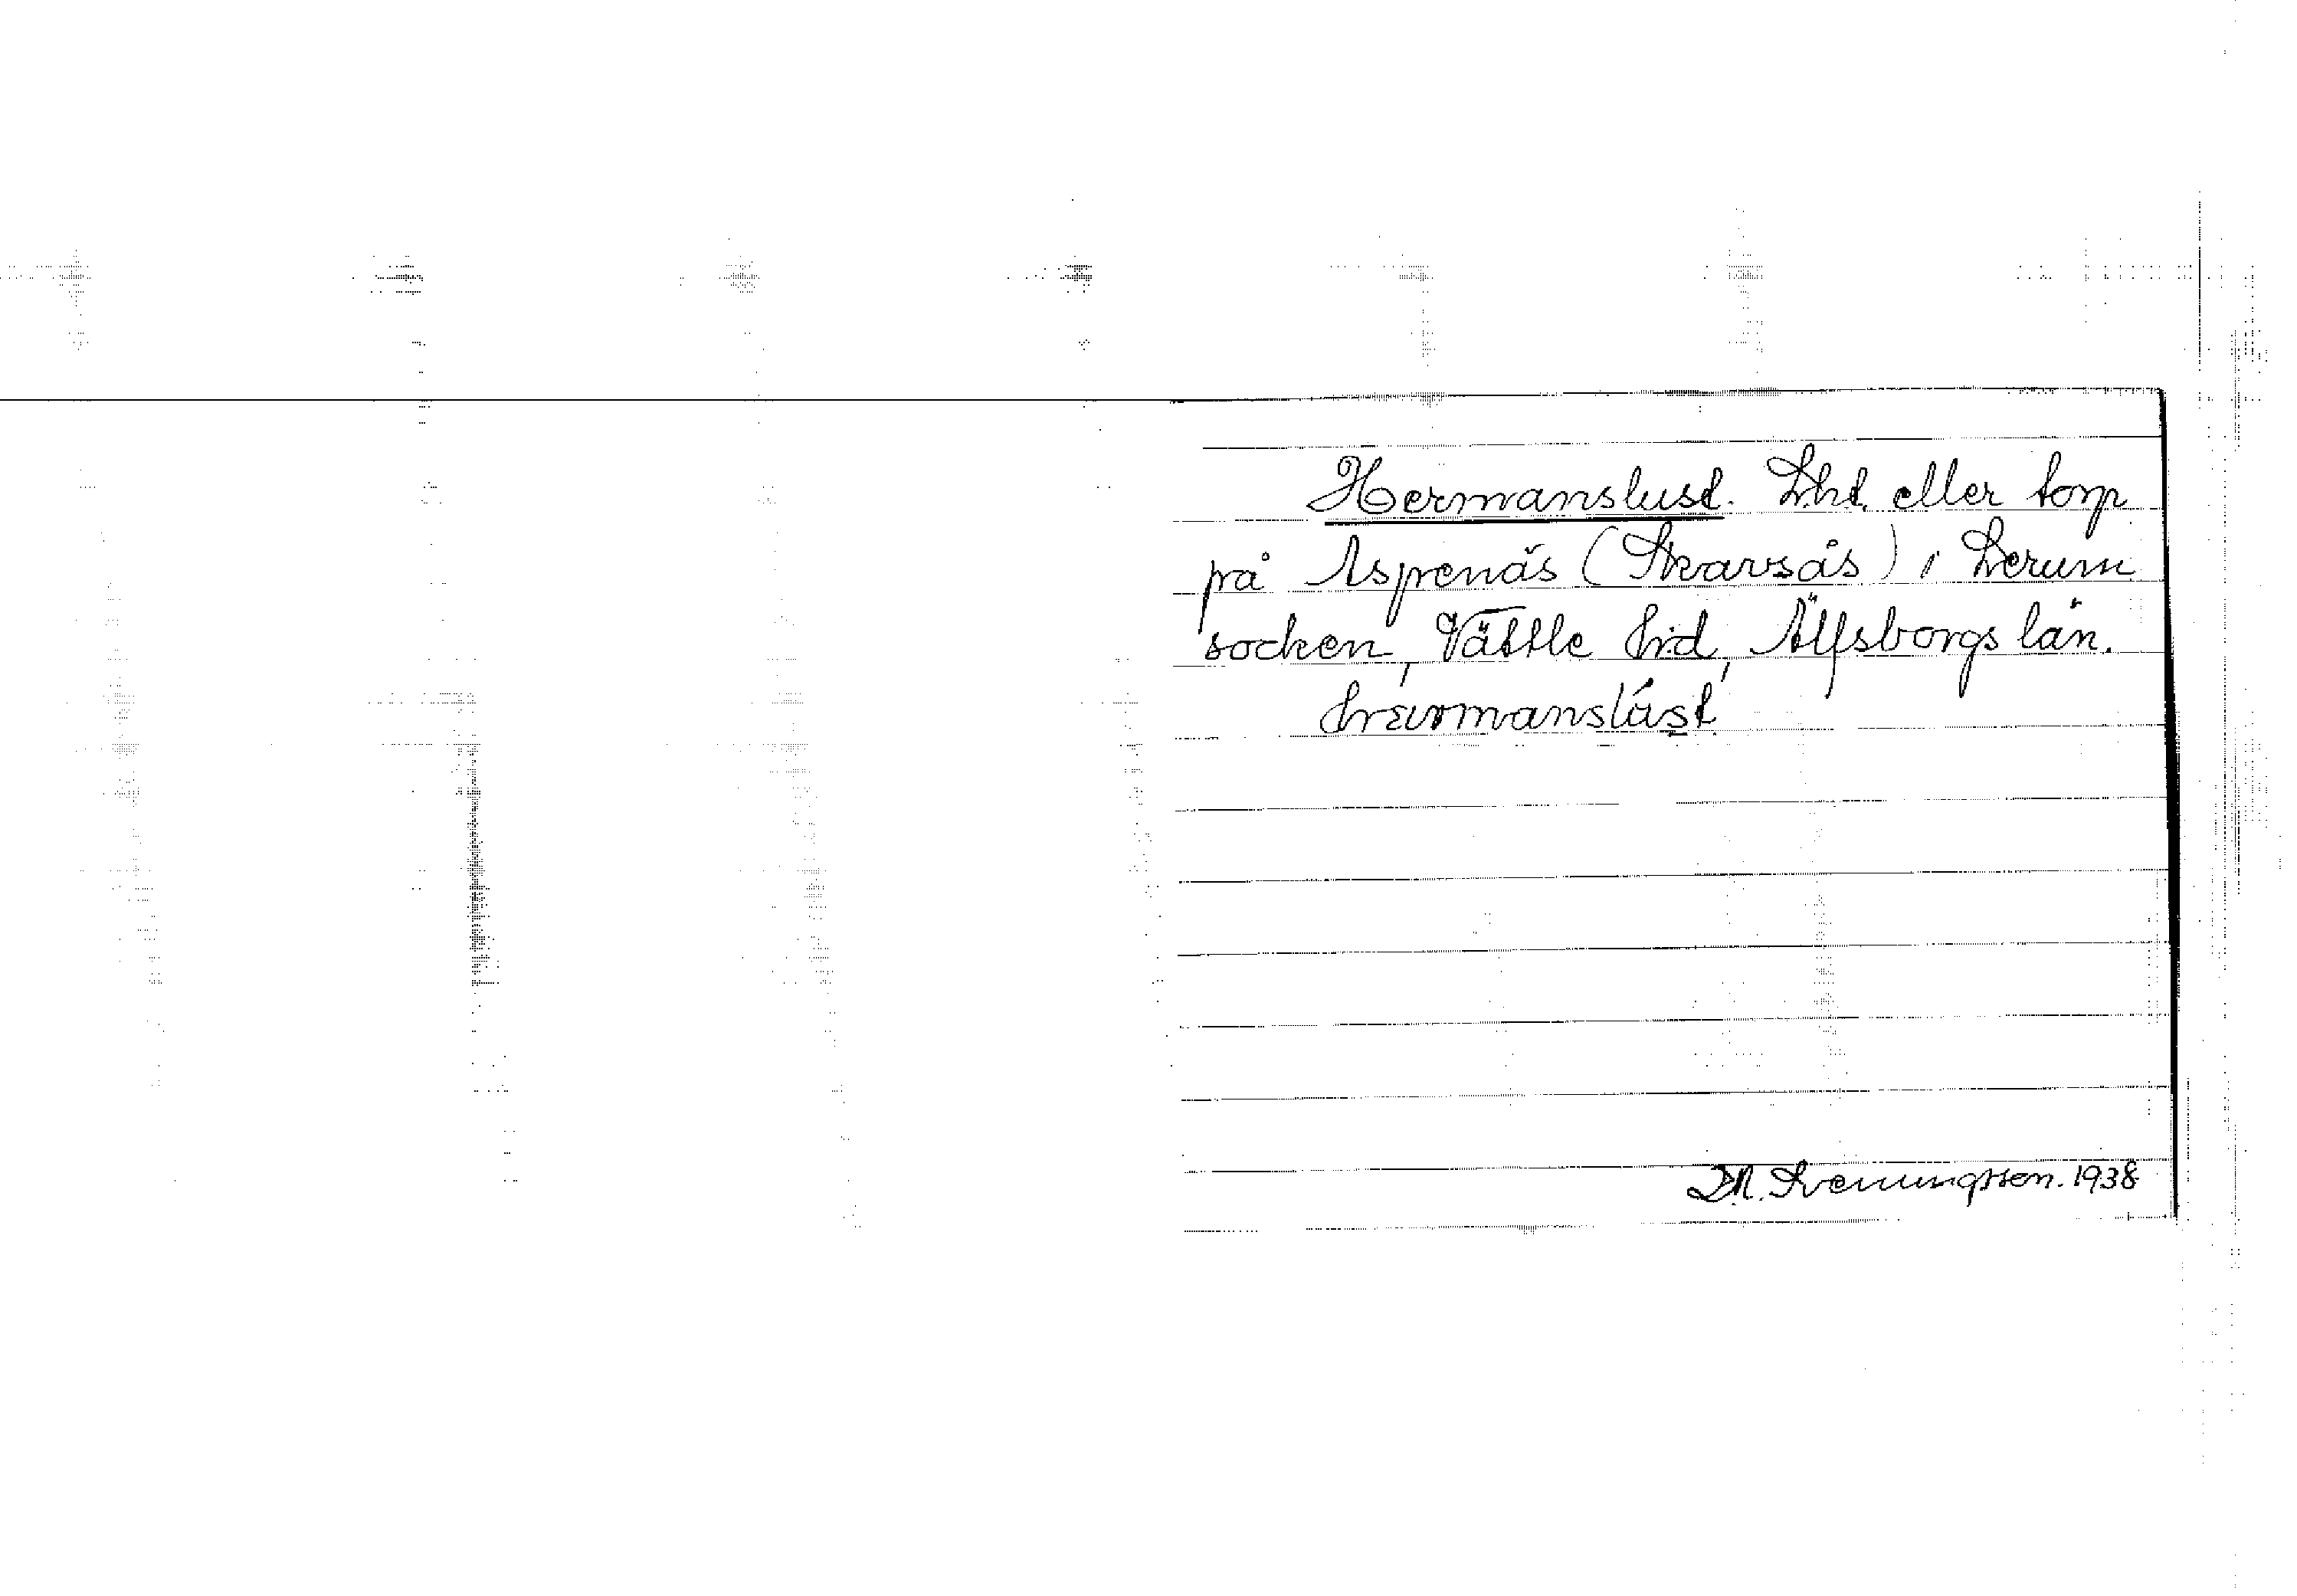 Hermanslust. Lht. eller torp
på Aspenäs (Skavsås) i Lerum
socken, Vättle hd, Älfsborgs län.
hærmanslúst
D.N. Svenungsson. 1938